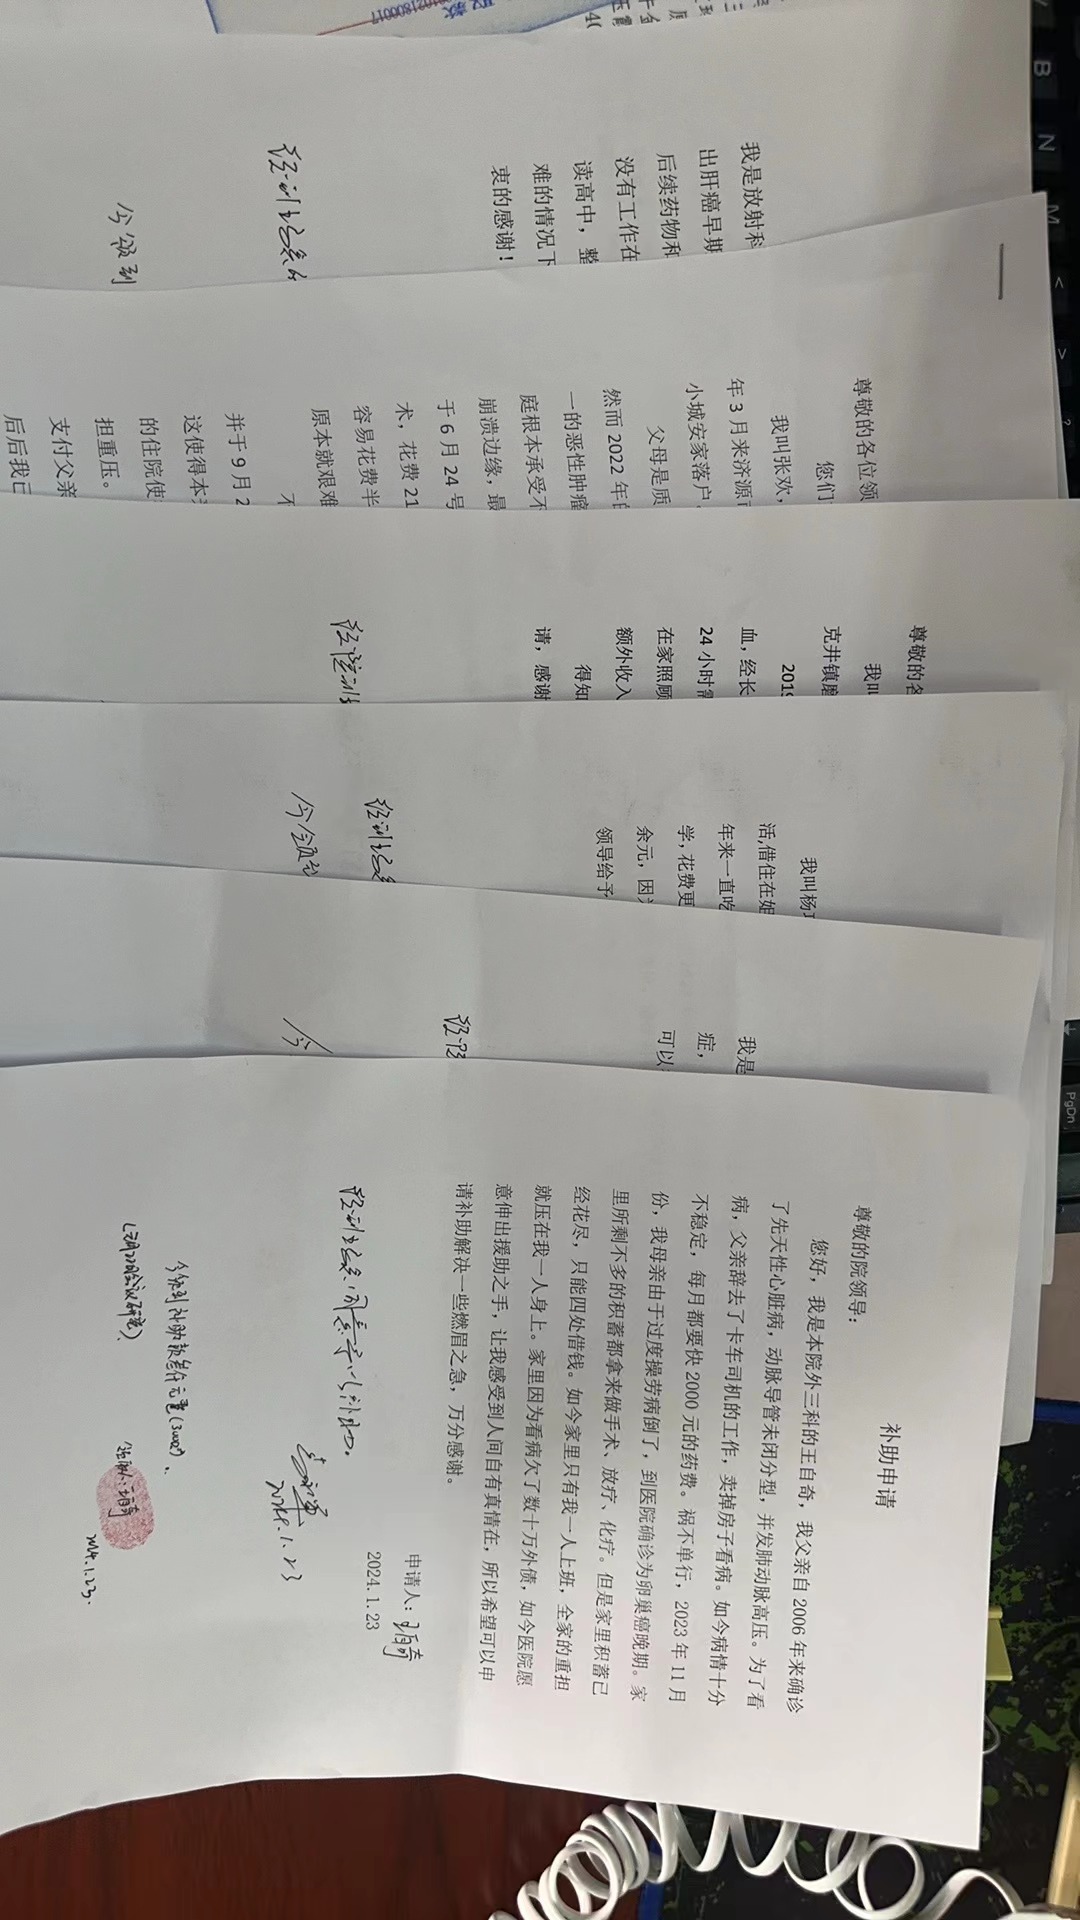 补助申请
尊敬的院领导：
您好，我是本院外三科的王自奇，我父亲自2006年来确诊
了先天性心脏病，动脉导管未闭分型，并发肺动脉高压。为了看
病，父亲辞去了卡车司机的工作，卖掉房子看病。如今病情十分
不稳定，每月都要快2000元的药费。祸不单行，2023年11月
份，我母亲由于过度操劳病倒了，到医院确诊为卵巢癌晚期。家
里所剩不多的积蓄都拿来做手术、放疗、化疗。但是家里积蓄已
经花尽，只能四处借钱。如今家里只有我一人上班，全家的重担
就压在我一人身上。家里因为看病欠了数十万外债，如今医院愿
意伸出援助之手，让我感受到人间自有真情在，所以希望可以申
请补助解决一些燃眉之急，万分感谢。
申请人：王自奇
2024.1.23
2024.1.23
今领到补助款叁仟元整(3000).
2024.1.23.
我是
症，
可以
我叫杨
活,借住在姐
年来一直吃
学,花费更
余元，因
领导给予
今领到
尊敬的各
我叫
克井镇
2019
血，经长
24小时需
在家照顾
额外收入
得知
请，感谢
尊敬的各位领
您们
我叫张欢，
年3月来济源
小城安家落户
父母是质
然而2022年
一的恶性肿瘤
庭根本承受不
崩溃边缘，最
于6月24号
术，花费21
容易花费半
原本就艰难
不
并于9月2
这使得本
的住院使
担重压。
支付父亲
后后我已
我是放射科
出肝癌早期
后续药物和
没有工作在
读高中，整
难的情况下
衷的感谢！
今领到
B
N
M
PgDn